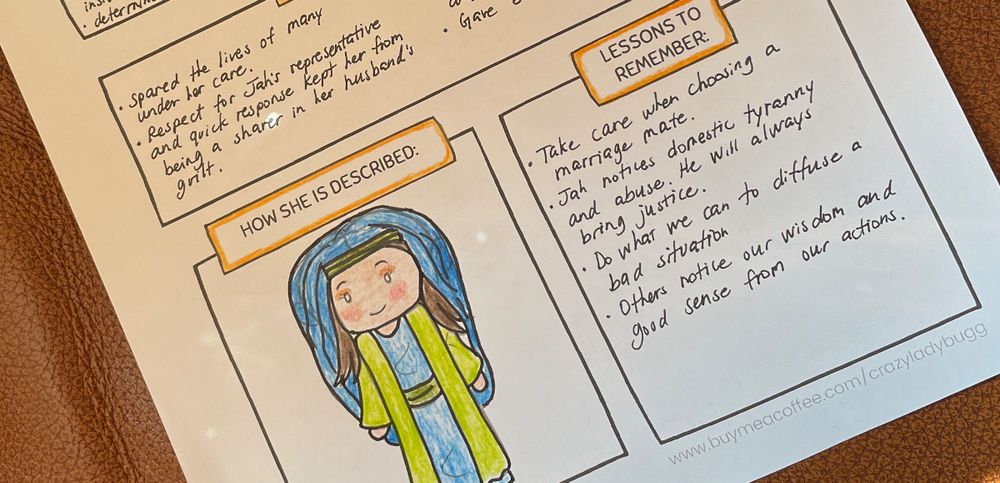 • determin
• spared the lives of many
under her care.
• Respect for Jah's representative
and quick response kept her from
being a sharer in her husband's
guilt.
• Gave
HOW SHE IS DESCRIBED:
LESSONS TO
REMEMBER:
• Take care when choosing a
marriage mate.
• Jah notices domestic tyranny
and abuse. He will always
bring justice.
• Do what we can to diffuse a
bad situation
• Others notice our wisdom and
good sense from our actions.
www.buymeacoffee.com/crazyladybugg